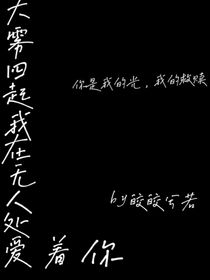 大雾四起我在无人处爱着你
你是我的光，我的救赎
by皎皎兮若